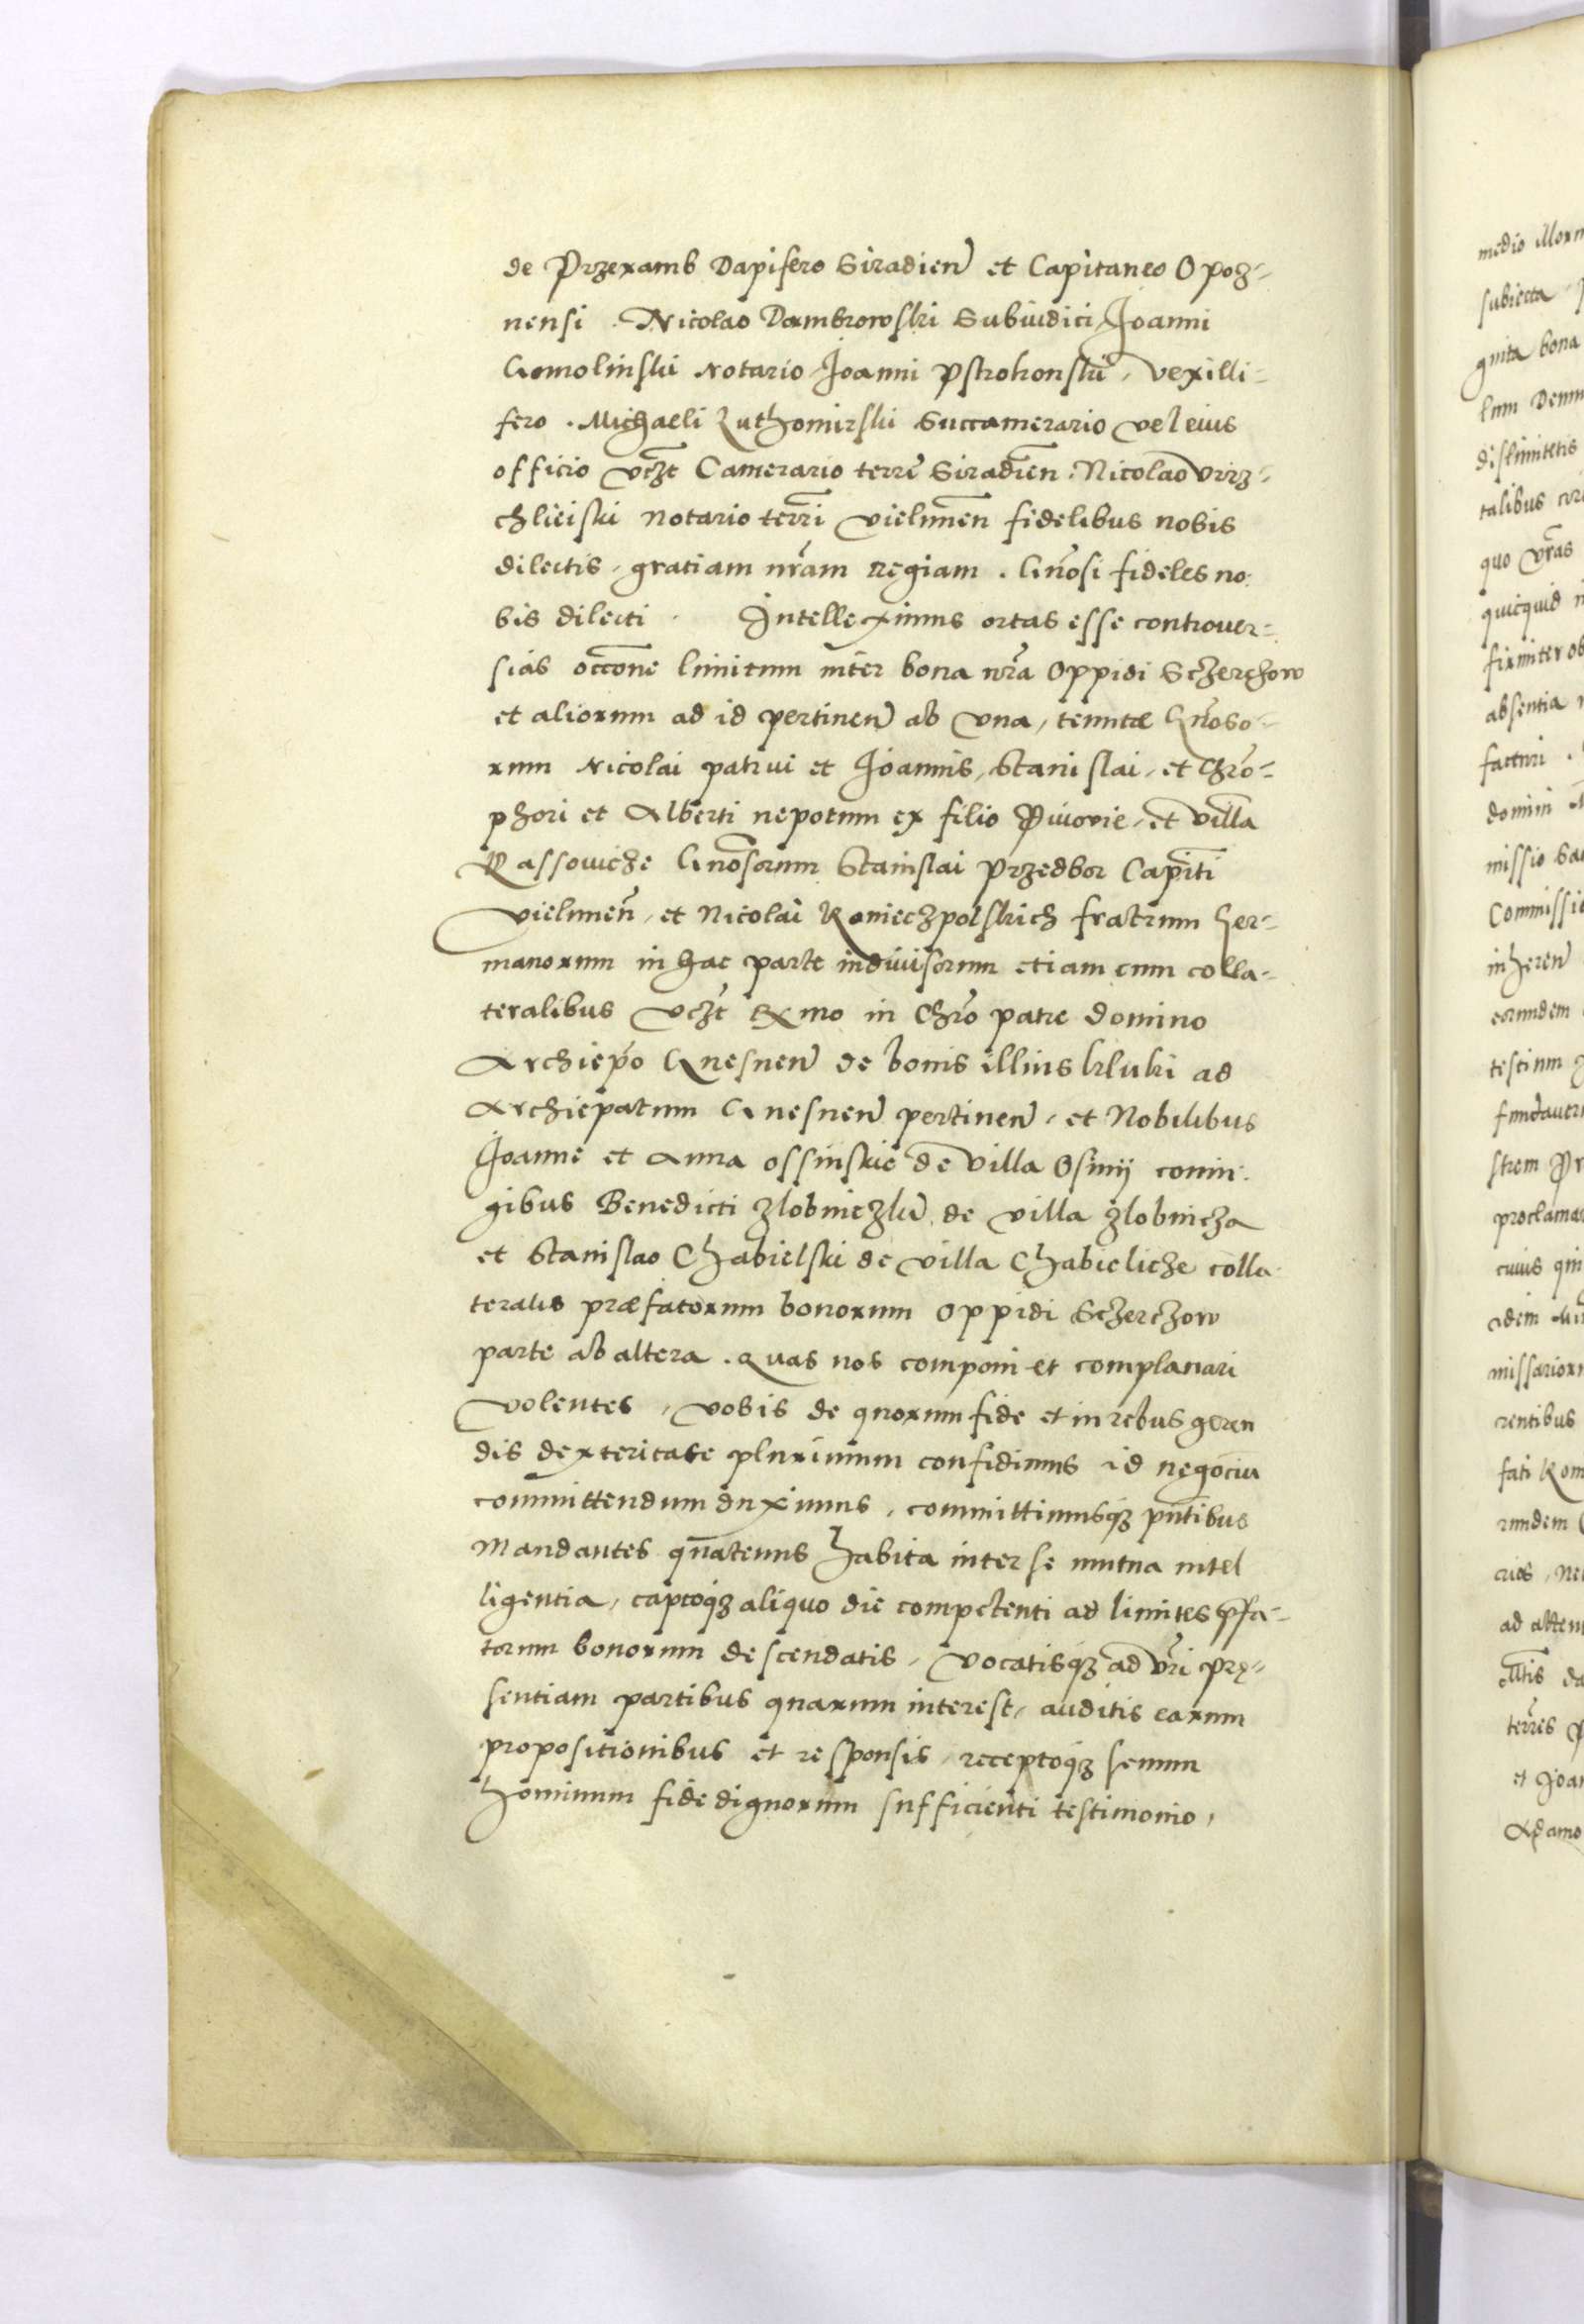 de Przeramb Dapifero Siradien̄ et Capitaneo Opoz-
nensi . Nicolao Dambrowski Subiudici Joanni
Gomolinski Notario Joanni Pstrokonski, vexilli-
fero . Michaeli Luthomirski Succamerario vel eius
officio vcz̄t Camerario terrē Siradien̄. Nicolao
chlieiski Notario terrī vielunen̄ fidelibus nobis
dilectis, gratiam nrām regiam . Gn̄osi fideles no-
bis dilecti . Intelleximus ortas esse controuer-
sias occōne limitum inter bona nrā Oppidi Sczerczow
et aliorum ad id pertinen̄ ab vna, tenutæ Gn̄oso-
rum Nicolai patrui et Joannis, Stanislai, et Chrō-
phori et Alberti nepotum ex filio Piuonie, et villa
Rassowicze Gn̄osorum Stanislai Przedbor Capīti
vielunen̄, et Nicolai Konieczpolskich fratrum ger-
manorum in hac parte indiuisorum etiam cum colla-
teralibus vcz̄t Rx̄mo in Chrō patre domino
Archiep̄o Gnesnen̄ de bonis illius kluki ad
Archiep̄atum Gnesnen̄ pertinen̄, et Nobilibus
Joanne et Anna ossinskie de villa Osiny coniu-
gibus Benedicti zlobniczki de villa zlobnicza
et Stanislao Chabielski de villa Chabielicze colla-
teralis præfatorum bonorum Oppidi Sczerczow
parte ab altera . Quas nos componi et complanari
volentes, vobis de quorum fide et in rebus geren
dis dexteritate plurimum confidimus id negociū
committendum duximus, committimusq3 pn̄tibus
Mandantes quatenus habita inter se mutua intel
ligentia, captoq3 aliquo die competenti ad limites p̄fa-
torum bonorum descendatis, vocatisq3 ad vrī prę-
sentiam partibus quarum interest, auditis earum
propositionibus et responsis, receptoq3 senum
hominum fide dignorum sufficienti testimonio,